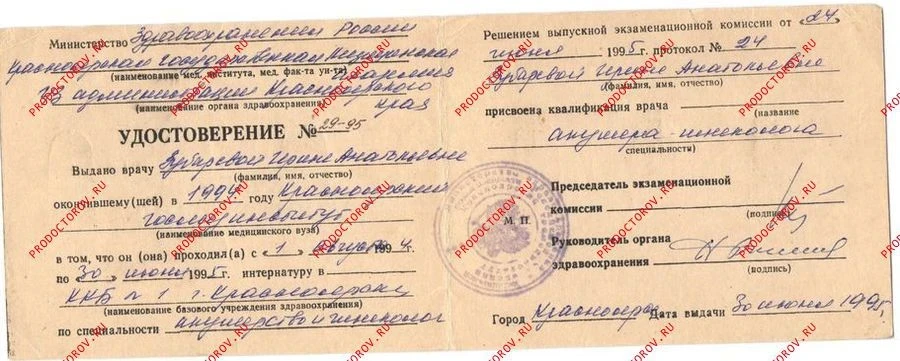 Министерство Здравоохранения России
Красноярская государственная медицинская
(наименование мед. института, мед. фак-та ун-та) академия
администрации Красноярского
(наименование органа здравоохранения) края
УДОСТОВЕРЕНИЕ № 29-95
Выдано врачу Ирине Анатольевне
(фамилия, имя, отчество)
окончившему(шей) в 1994 году Красноярский
госмединститут
(наименование медицинского вуза)
в том, что он (она) проходил(а) с 1 августа 1994 г.
по 30 июня 1995 г. интернатуру в
№ 1 г. Красноярска
(наименование базового учреждения здравоохранения)
по специальности акушерство и гинеколог
Решением выпускной экзаменационной комиссии от «24»
июня 1995 г. протокол № 24
Ирине Анатольевне
(фамилия, имя, отчество)
присвоена квалификация врача
(название
акушера-гинеколога
специальности)
Председатель экзаменационной
комиссии
(подпись)
М. П.
Руководитель органа
здравоохранения
(подпись)
Город Красноярск Дата выдачи 30 июня 1995 г.
PRODOCTOROV.RU